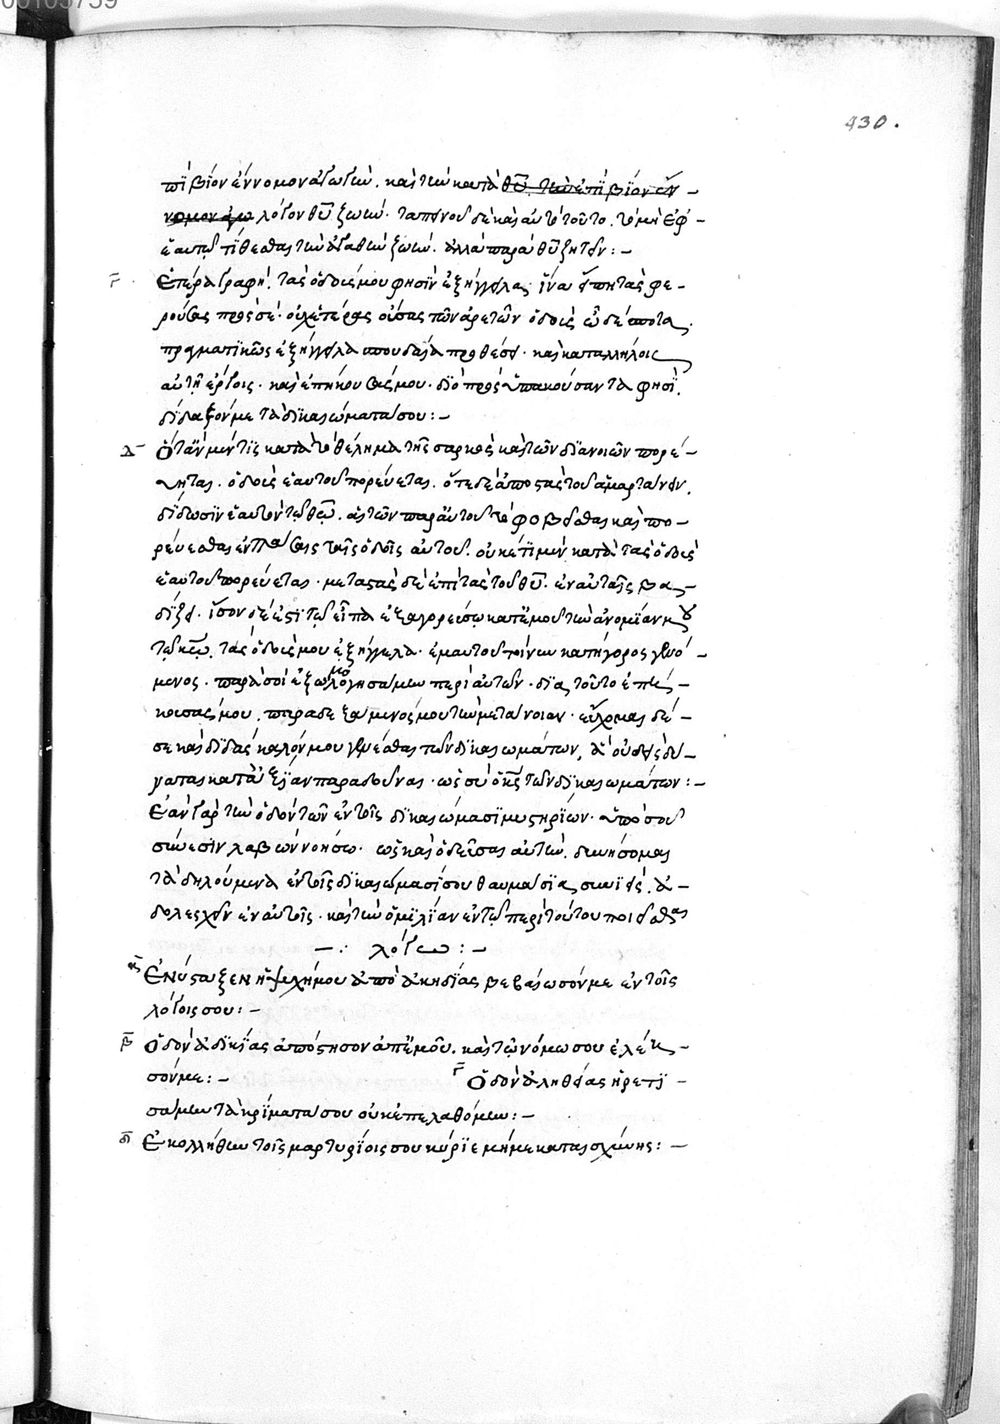 00105759
430.
πϊ βίον ἔννομον ἀγωγὴν. καὶ τὴν κατὰ θῡ. τὴν ἐπῒ βίον ἔν-
νομον ἀγω λόγον θῡ ζωὴν· ταπεινοῦ δὲ καὶ αὐτὸ τοῦτο. τὸ μὴ ἐφ᾽-
ἑαυτῷ τίθεσθαι τὴν ἀγαθὴν ζωήν. ἀλλὰ παρὰ θῡ ζητεῖν:-
γ Ἑτέρα γραφὴ. τὰς ὁδούς μου φησὶν ἐξήγγειλας· ἵνα εἴπῃ τὰς φε-
ρούσας πρὸς σέ· οὐχ ἑτέρας οὔσας τῶν ἀρετῶν ὁδοὺς
πραγματικῶς ἐξήγγειλα σπουδαία προθέσει· καὶ καταλλήλοις
αὐτῇ ἔργοις· καὶ ἐπήκουσάς μου· διὸ πρὸς ὑπακούσαντα φησὶ.
δίδαξόν με τὰ δικαιώματά σου:-
Δ Ὅταν μέν τις κατὰ τὸ θέλημα τῆς σαρκὸς καὶ τῶν διανοιῶν πορεύ-
ηται. ὁδοὺς ἑαυτοῦ πορεύεται. ὅτε δὲ ἀποστὰς τοῦ ἁμαρτάνειν.
δίδωσιν ἑαυτὸν τῷ θῶ. αἰτῶν παρ᾽ αὐτοῦ τὸ φοβεῖσθαι καὶ πο-
ρεύεσθαι ἐν πάσαις ταῖς ὁδοῖς αὐτοῦ. οὐκέτι μὲν κατὰ τὰς ὁδοὺς
ἑαυτοῦ πορεύεται· μεταστὰς δὲ ἐπὶ τὰς τοῦ θῡ. ἐν αὐταῖς βα-
δίζει. ἴσον δέ ἐστι τῷ εἶπα ἐξαγορεύσω κατ᾽ ἐμοῦ τὴν ἀνομίαν μου
τῷ κῶ. τὰς ὁδούς μου ἐξήγγειλα· ἐμαυτοῦ τοίνυν κατήγορος γενό-
μενος. παρὰ σοὶ ἐξωμολόγησάμην περὶ αὐτῶν· διὰ τοῦτο ἐπή-
κουσάς μου. παραδεξάμενός μου τὴν μετάνοιαν· εὔχομαι δέ-
σε καὶ διδάσκαλόν μου γενέσθαι τῶν δικαιωμάτων, ἃ οὐδεὶς δύ-
ναται κατ᾽ ἀξίαν παραδοῦναι· ὡς σὺ ὁ κς τῶν δικαιωμάτων:-
Ἐὰν γὰρ τὴν ὁδὸν τῶν ἐν τοῖς δικαιώμασι μυστηρίων· ἀπὸ σοῦ
σύνεσιν λαβὼν νοήσω. ὡς καὶ ὁδεῦσαι αὐτὴν. δυνήσομαι
τὰ δηλούμενα ἐν τοῖς δικαιώμασί σου θαυμάσια συνιεὶς. ἀ-
δολεσχεῖν ἐν αὐτοῖς· καὶ τὴν ὁμιλίαν ἐν τῷ περὶ τούτου ποιεῖσθαι
-: λόγω:-
Ἐνύσταξεν ἡ ψυχή μου ἀπὸ ἀκηδίας βεβαίωσόν με ἐν τοῖς
λόγοις σου:-
β Ὁδὸν ἀδικίας ἀπόστησον ἀπ᾽ ἐμοῦ. καὶ τῷ νόμω σου ἐλέη-
σόν με:- γ Ὁδὸν ἀληθείας ᾑρετι-
σάμην τὰ κρίματά σου οὐκ ἐπελαθόμην:-
δ Ἐκολλήθην τοῖς μαρτυρίοις σου κύριε μή με καταισχύνης:-